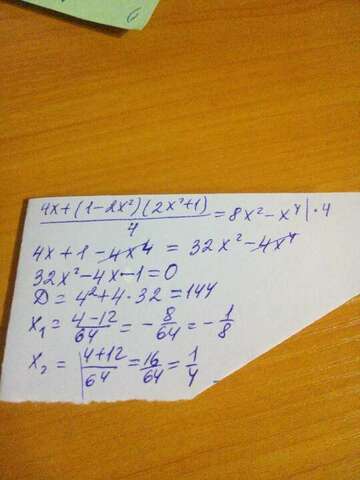 6
4x+(1-2x²)(2x²+1)/4 = 8x²-x⁴ | · 4
4x+1-4x⁴ = 32x²-4x⁴
32x²-4x-1=0
D = 4²+4·32=144
x₁ = 4-12/64 = -8/64 = -1/8
x₂ = 4+12/64 = 16/64 = 1/4